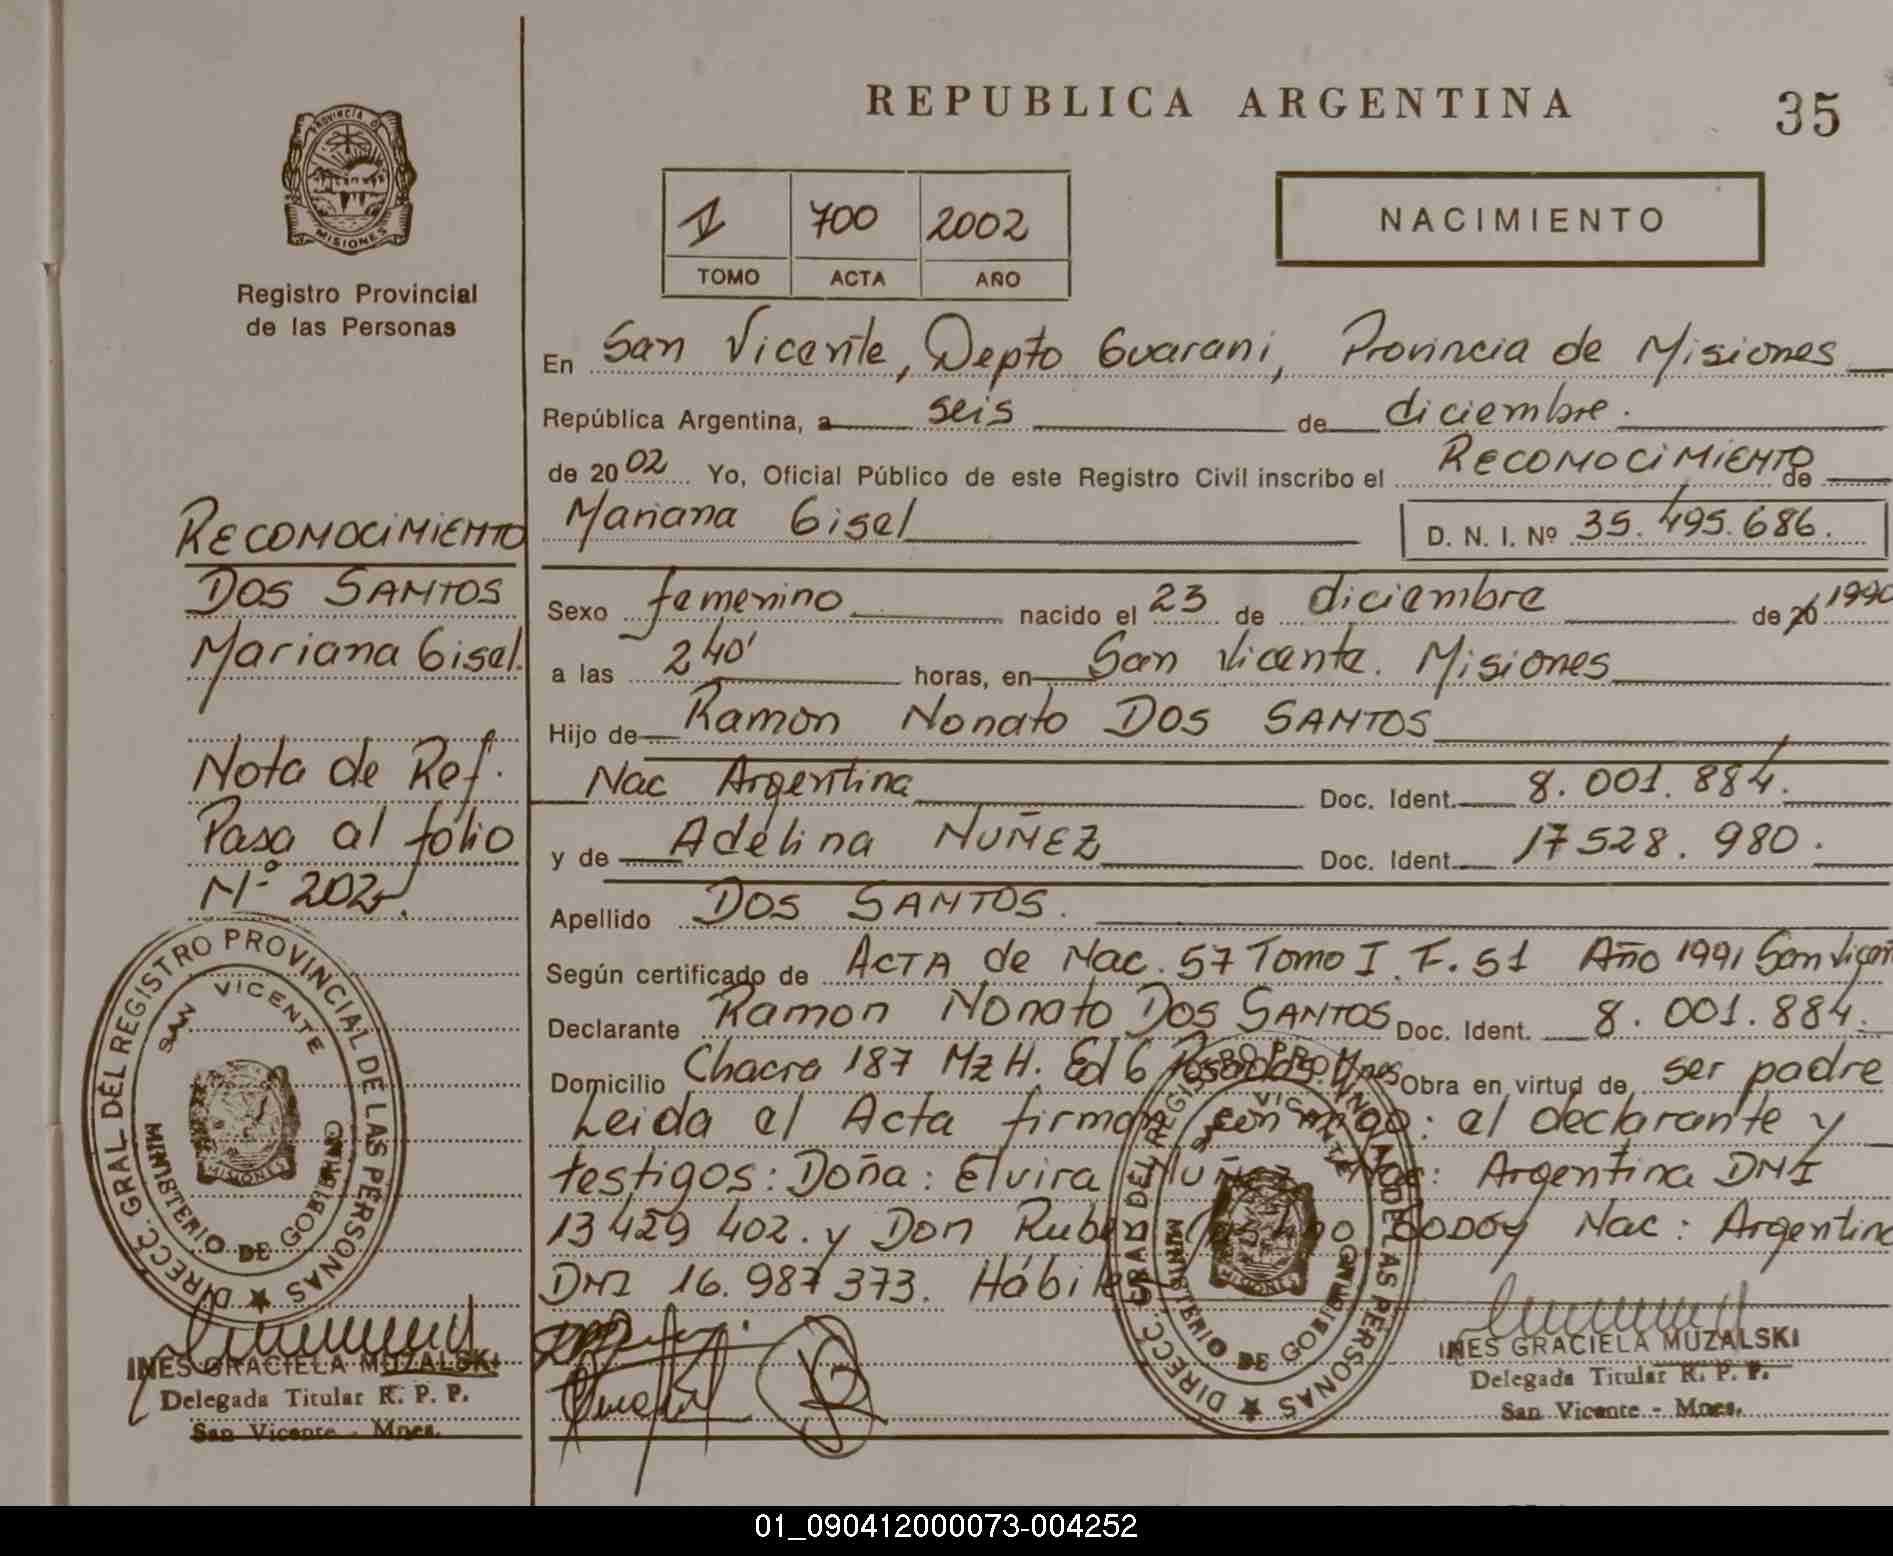 REPUBLICA ARGENTINA
35
PROVINCIA D
MISIONES
Registro Provincial
de las Personas
700 2002
TOMO ACTA AÑO
NACIMIENTO
En San Vicente, Depto Guarani, Provincia de Misiones
República Argentina, a seis de diciembre.
de 20 02 Yo, Oficial Público de este Registro Civil inscribo el RECONOCIMIENTO de
Mariana Gisel D. N. I. Nº 35.495.686.
Sexo femenino nacido el 23 de diciembre de 20 1990
a las 2 40' horas, en San Vicente. Misiones
Hijo de Ramon Nonato DOS SANTOS
Nac Argentina Doc. Ident. 8.001.884.
y de Adelina NUÑEZ Doc. Ident. 17528.980.
Apellido DOS SANTOS.
Según certificado de ACTA de Nac. 57 Tomo I. F. 51 Año 1991 San Vicen
Declarante Ramon Nonato DOS SANTOS Doc. Ident. 8.001.884.
Domicilio Chacra 187 Mz H. Ed 6 Posadas. Mnes Obra en virtud de ser padre
Leida el Acta firman conmigo: el declarante y
testigos: Doña: Elvira NUÑEZ Nac: Argentina DNI
13 429 402. y Don Ruben GODOY Nac: Argentina
DNI 16.987373. Hábiles
RECONOCIMIENTO
DOS SANTOS
Mariana Gisel.
Nota de Ref.
Pasa al folio
Nº 202
DIRECC. GRAL. DEL REGISTRO PROVINCIAL DE LAS PERSONAS
SAN VICENTE
MISIONES
MINISTERIO DE GOBIERNO
INES GRACIELA MUZALSKI
Delegada Titular R. P. P.
San Vicente - Mnes.
DIRECC. GRAL. DEL REGISTRO PROVINCIAL DE LAS PERSONAS
SAN VICENTE
MISIONES
MINISTERIO DE GOBIERNO
INES GRACIELA MUZALSKI
Delegada Titular R. P. P.
San Vicente - Mnes.
01_090412000073-004252